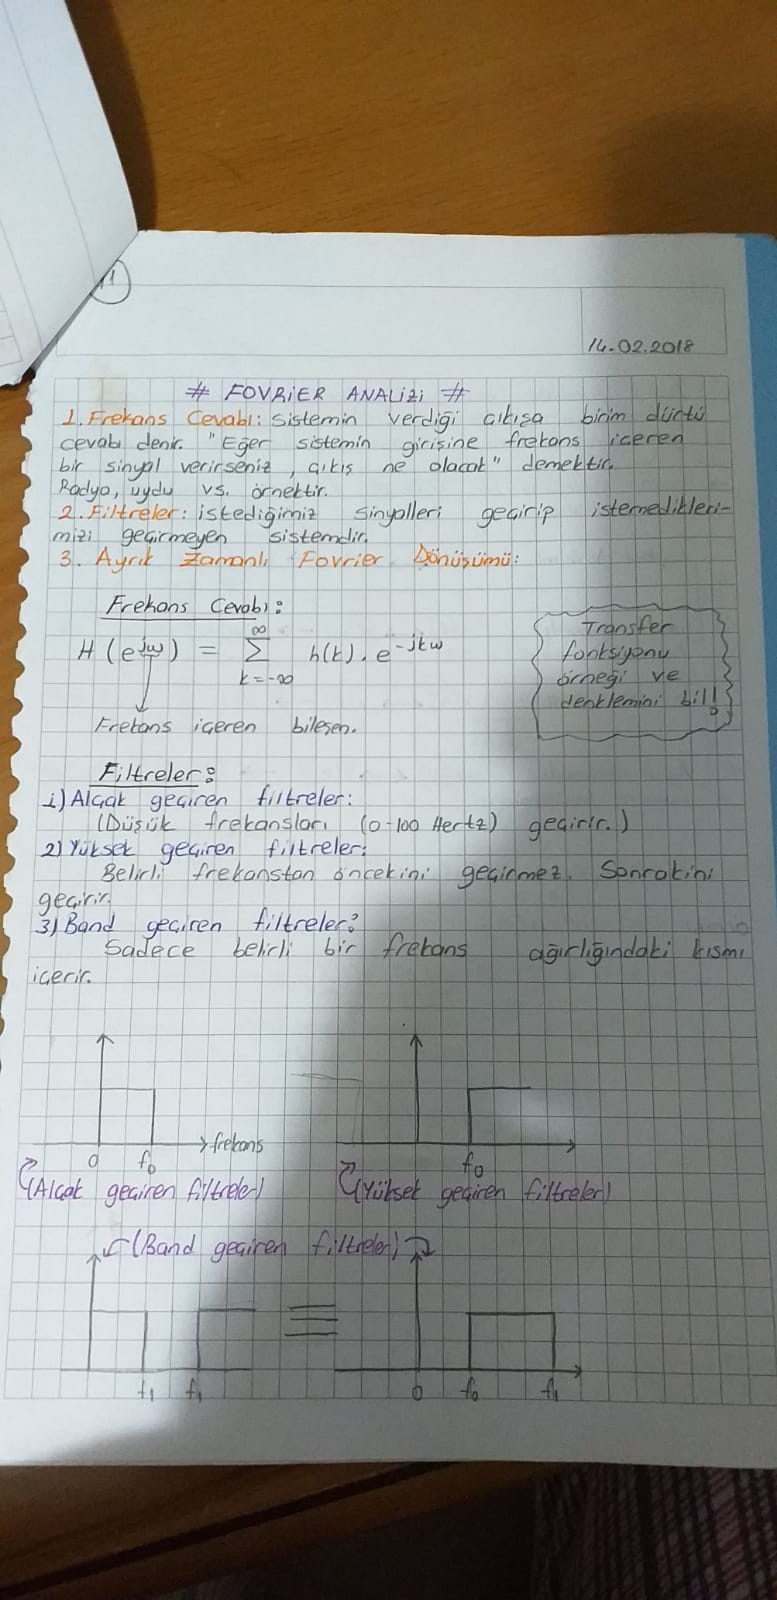 1
14.02.2018
# FOVRiER ANALiZi #
1. Frekans Cevabı: Sistemin verdiği çıkışa birim dürtü
cevabı denir. "Eğer sistemin girişine frekans içeren
bir sinyal verirseniz, çıkış ne olacak" demektir.
Radyo, uydu vs. örnektir.
2. Filtreler: istediğimiz sinyalleri geçirip istemedikleri-
mizi geçirmeyen sistemdir.
3. Ayrık Zamanlı Fovrier Dönüşümü:
Frekans Cevabı:
H(e^jw) = ∑ h(k).e^-jkw
∞
k=-∞
Frekans içeren bileşen.
Transfer
fonksiyonu
örneği ve
denklemini bil!!
Filtreler:
1) Alçak geçiren filtreler:
(Düşük frekansları (0-100 Hertz) geçirir.)
2) Yüksek geçiren filtreler:
Belirli frekanstan öncekini geçirmez. Sonrakini
geçirir.
3) Band geçiren filtreler:
Sadece belirli bir frekans ağırlığındaki kısmı
içerir.
0 f0 frekans
f0
(Alçak geçiren filtreler)
(Yüksek geçiren filtreler)
(Band geçiren filtreler)
f1 f1
≡
0 f0 f1